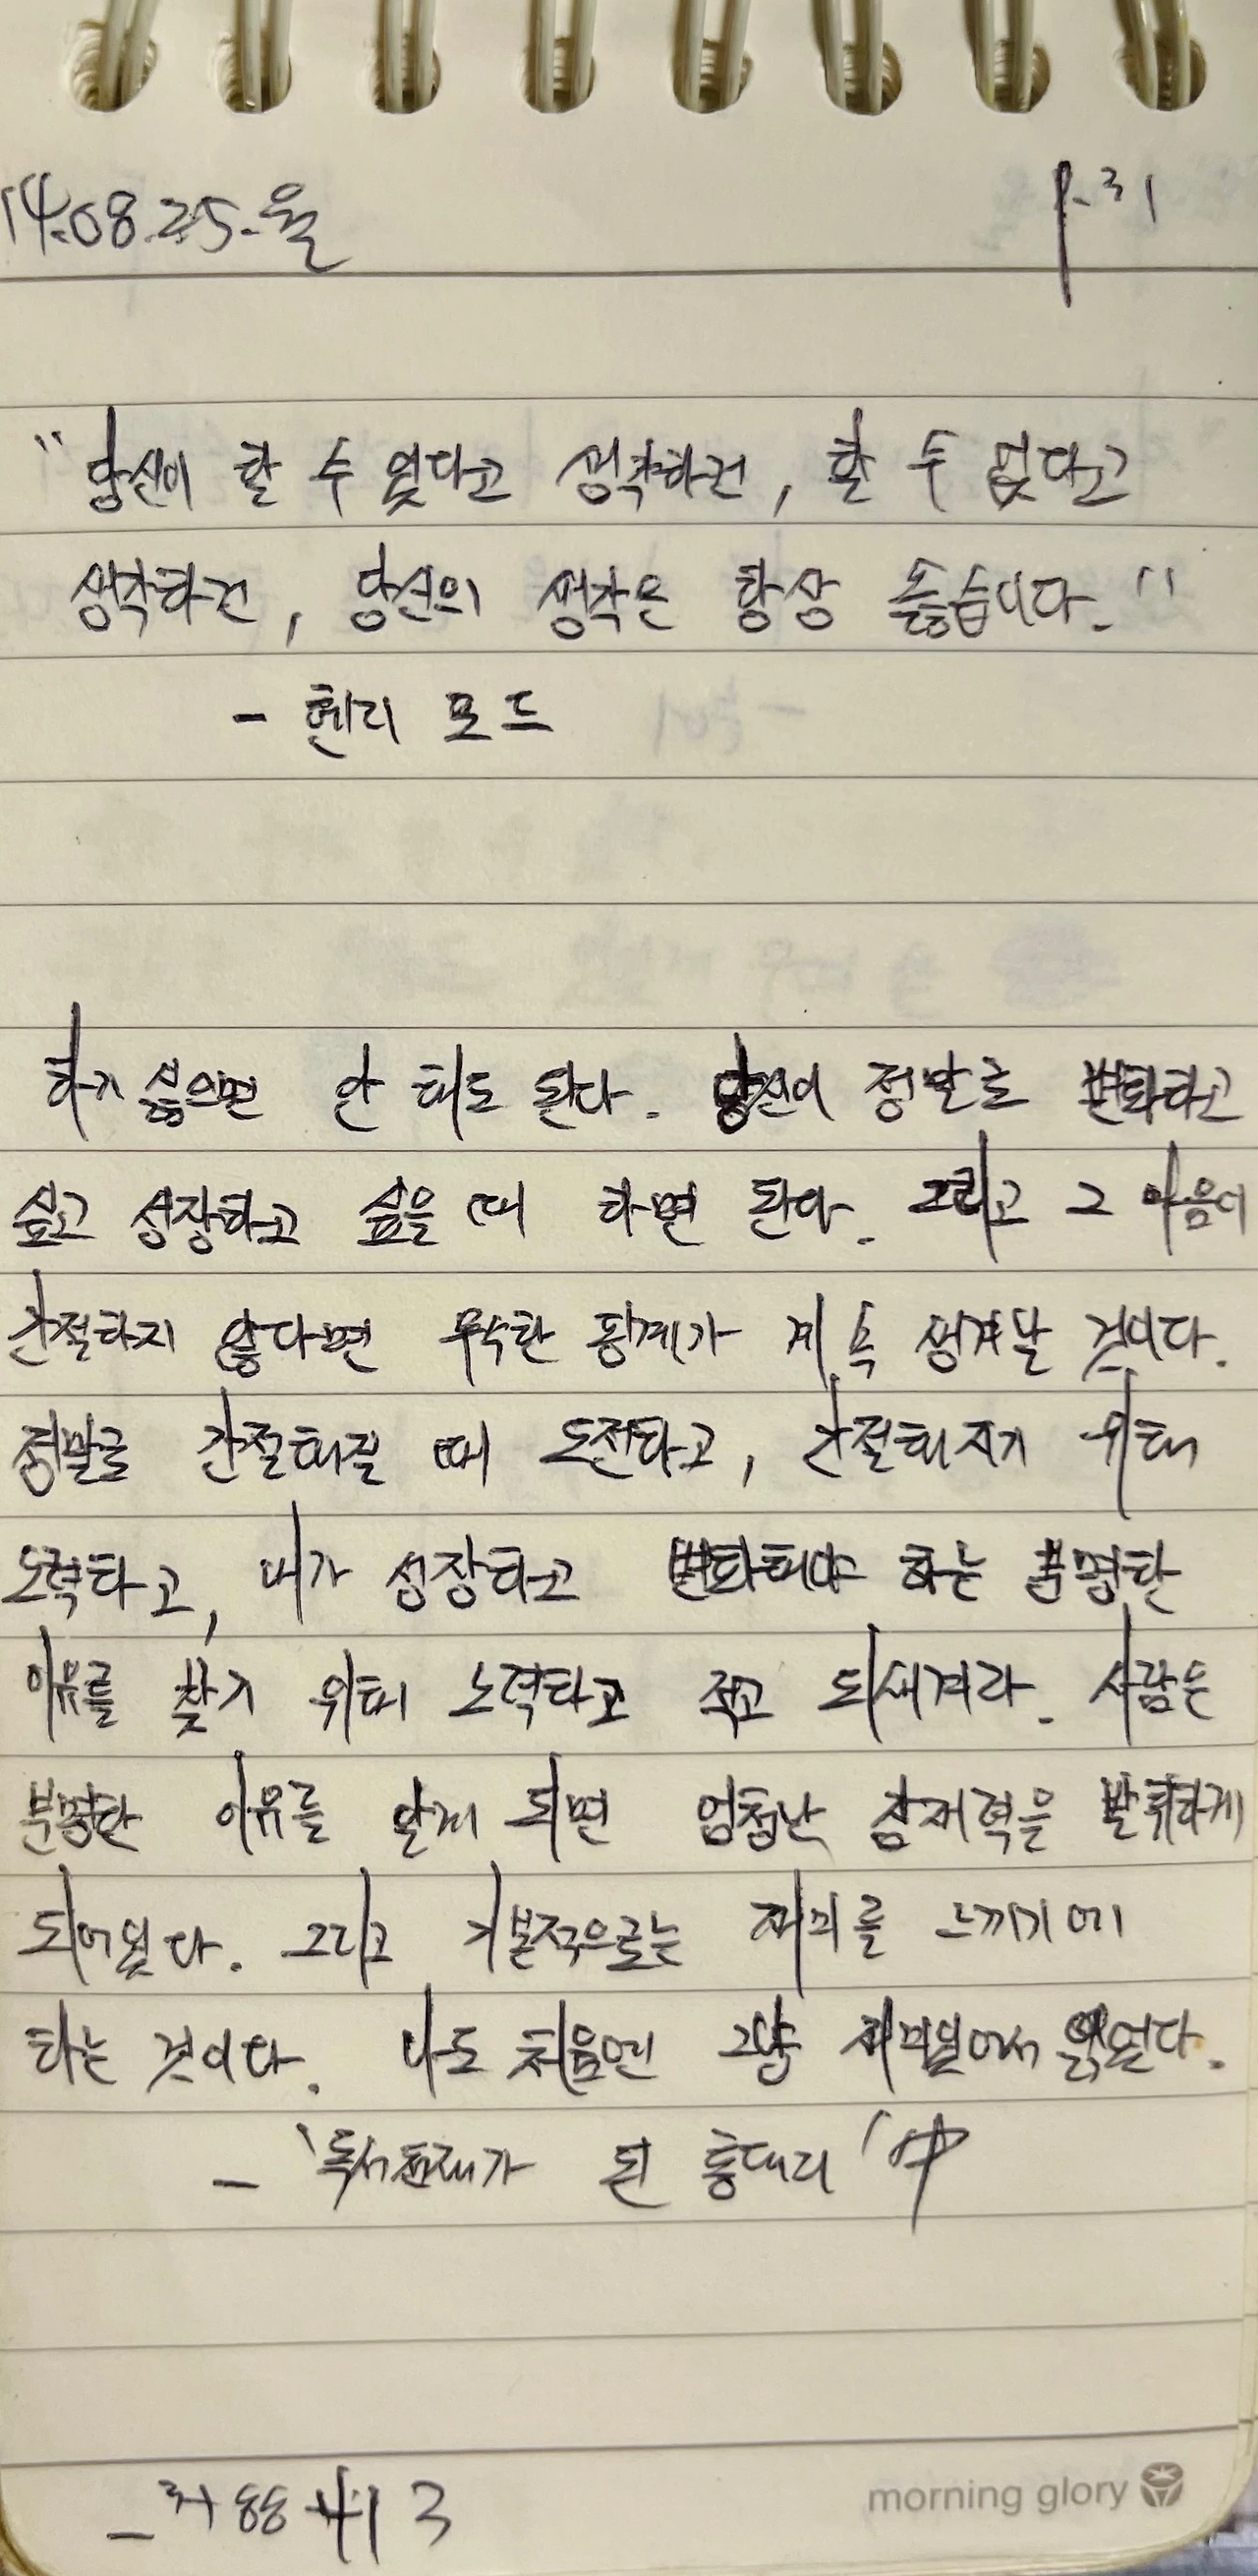 14.08.25.월
p.31
"당신이 할 수 있다고 생각하건, 할 수 없다고
생각하건, 당신의 생각은 항상 옳습니다."
- 헨리 포드
하기 싫으면 안 해도 된다. 당신이 정말로 변화하고
싶고 성장하고 싶을 때 하면 된다. 그리고 그 마음이
간절하지 않다면 무수한 핑계가 계속 생겨날 것이다.
정말로 간절해질 때 도전하고, 간절해지기 위해
노력하고, 내가 성장하고 변화해야 하는 분명한
이유를 찾기 위해 노력하고 적고 되새겨라. 사람은
분명한 이유를 알게 되면 엄청난 잠재력을 발휘하게
되어있다. 그리고 기본적으로는 재미를 느끼기에
하는 것이다. 나도 처음엔 그냥 재미있어서 읽었다.
- '독서천재가 된 홍대리' 中
morning glory